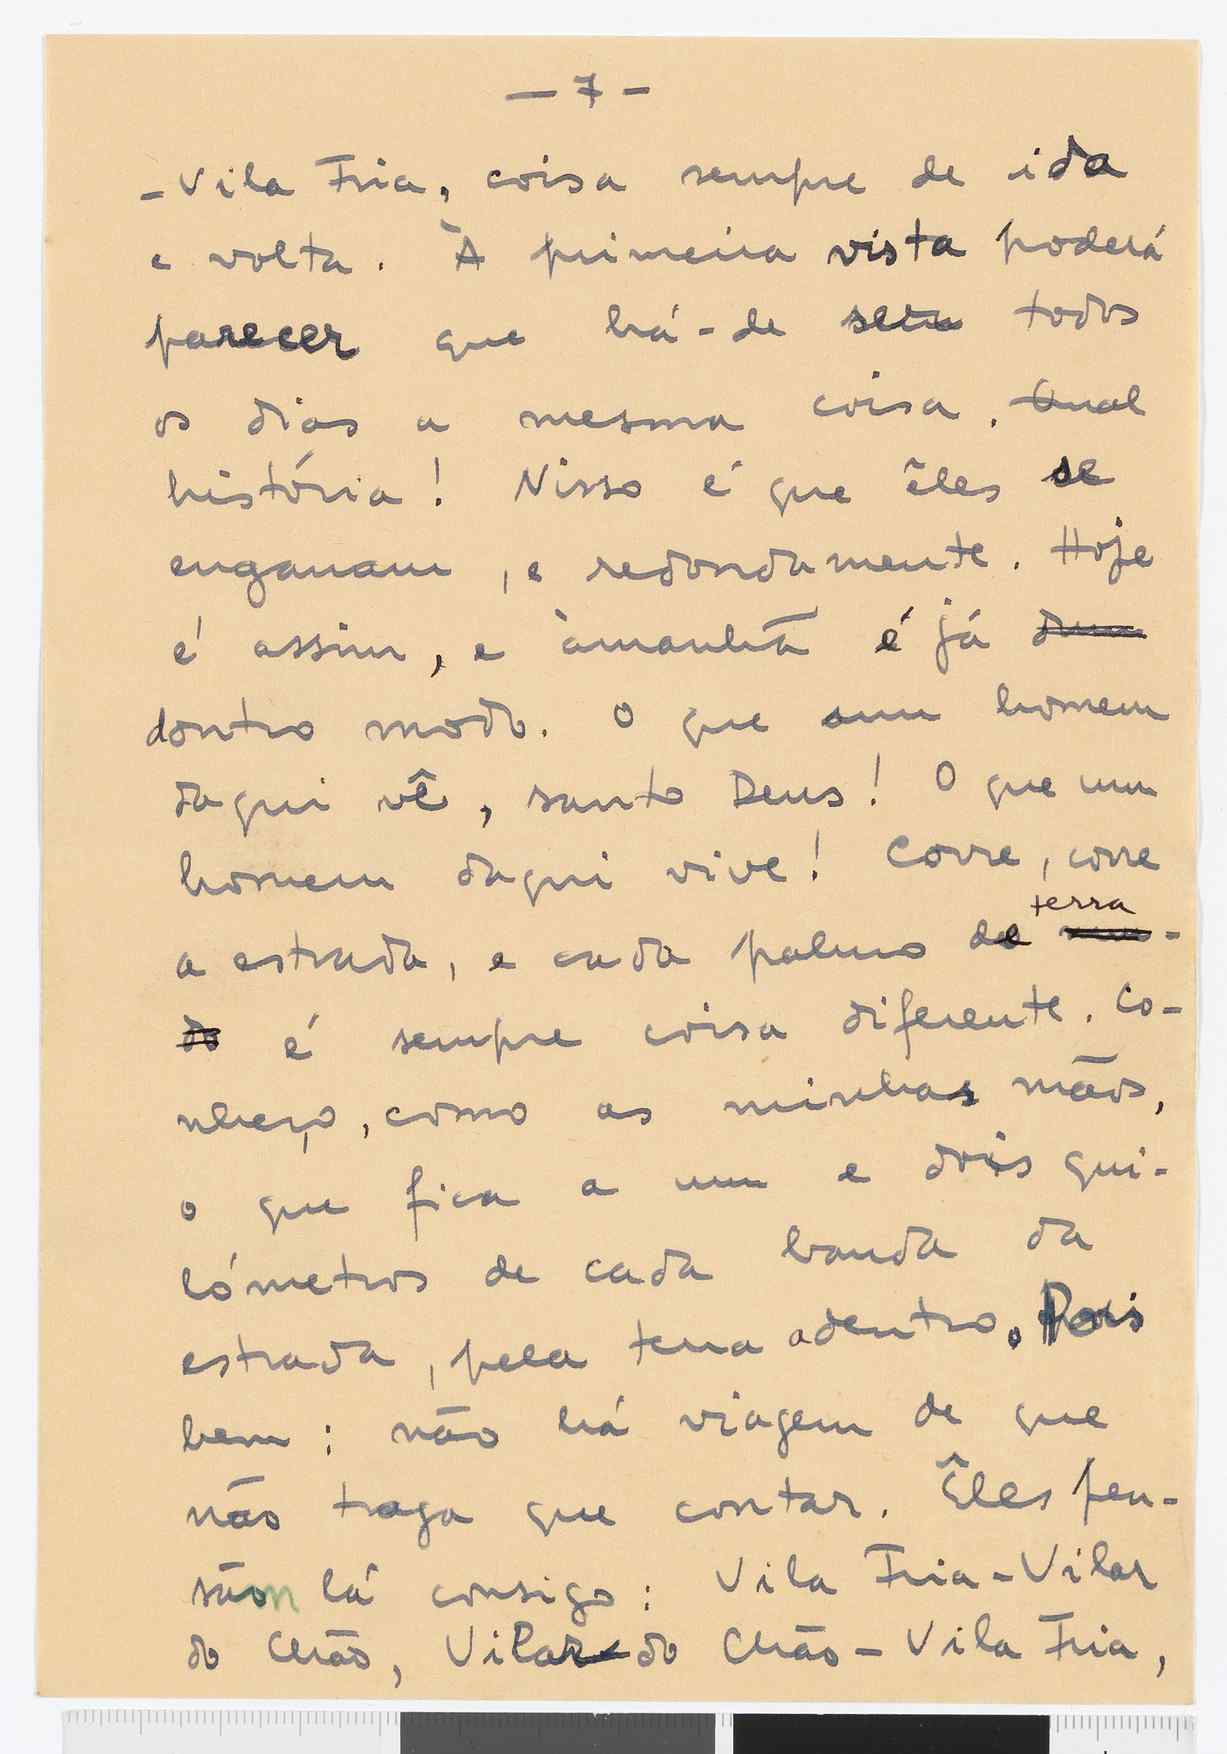 — 7 —
-Vila Fria, coisa sempre de ida
e volta. À primeira vista poderá
parecer que há-de ser todos
os dias a mesma coisa. Qual
história! Nisso é que êles se
enganam, e redondamente. Hoje
é assim, e àmanhã é já
doutro modo. O que um homem
daqui vê, santo Deus! O que um
homem daqui vive! Corre, corre
terra
a estrada, e cada palmo de
do é sempre coisa diferente. Co-
nheço, como as minhas mãos,
o que fica a um e dois qui-
lómetros de cada banda da
estrada, pela terra adentro. Pois
bem: não há viagem de que
não traga que contar. Êles pen-
sam lá consigo: Vila Fria-Vilar
do Chão, Vilar do Chão-Vila Fria,